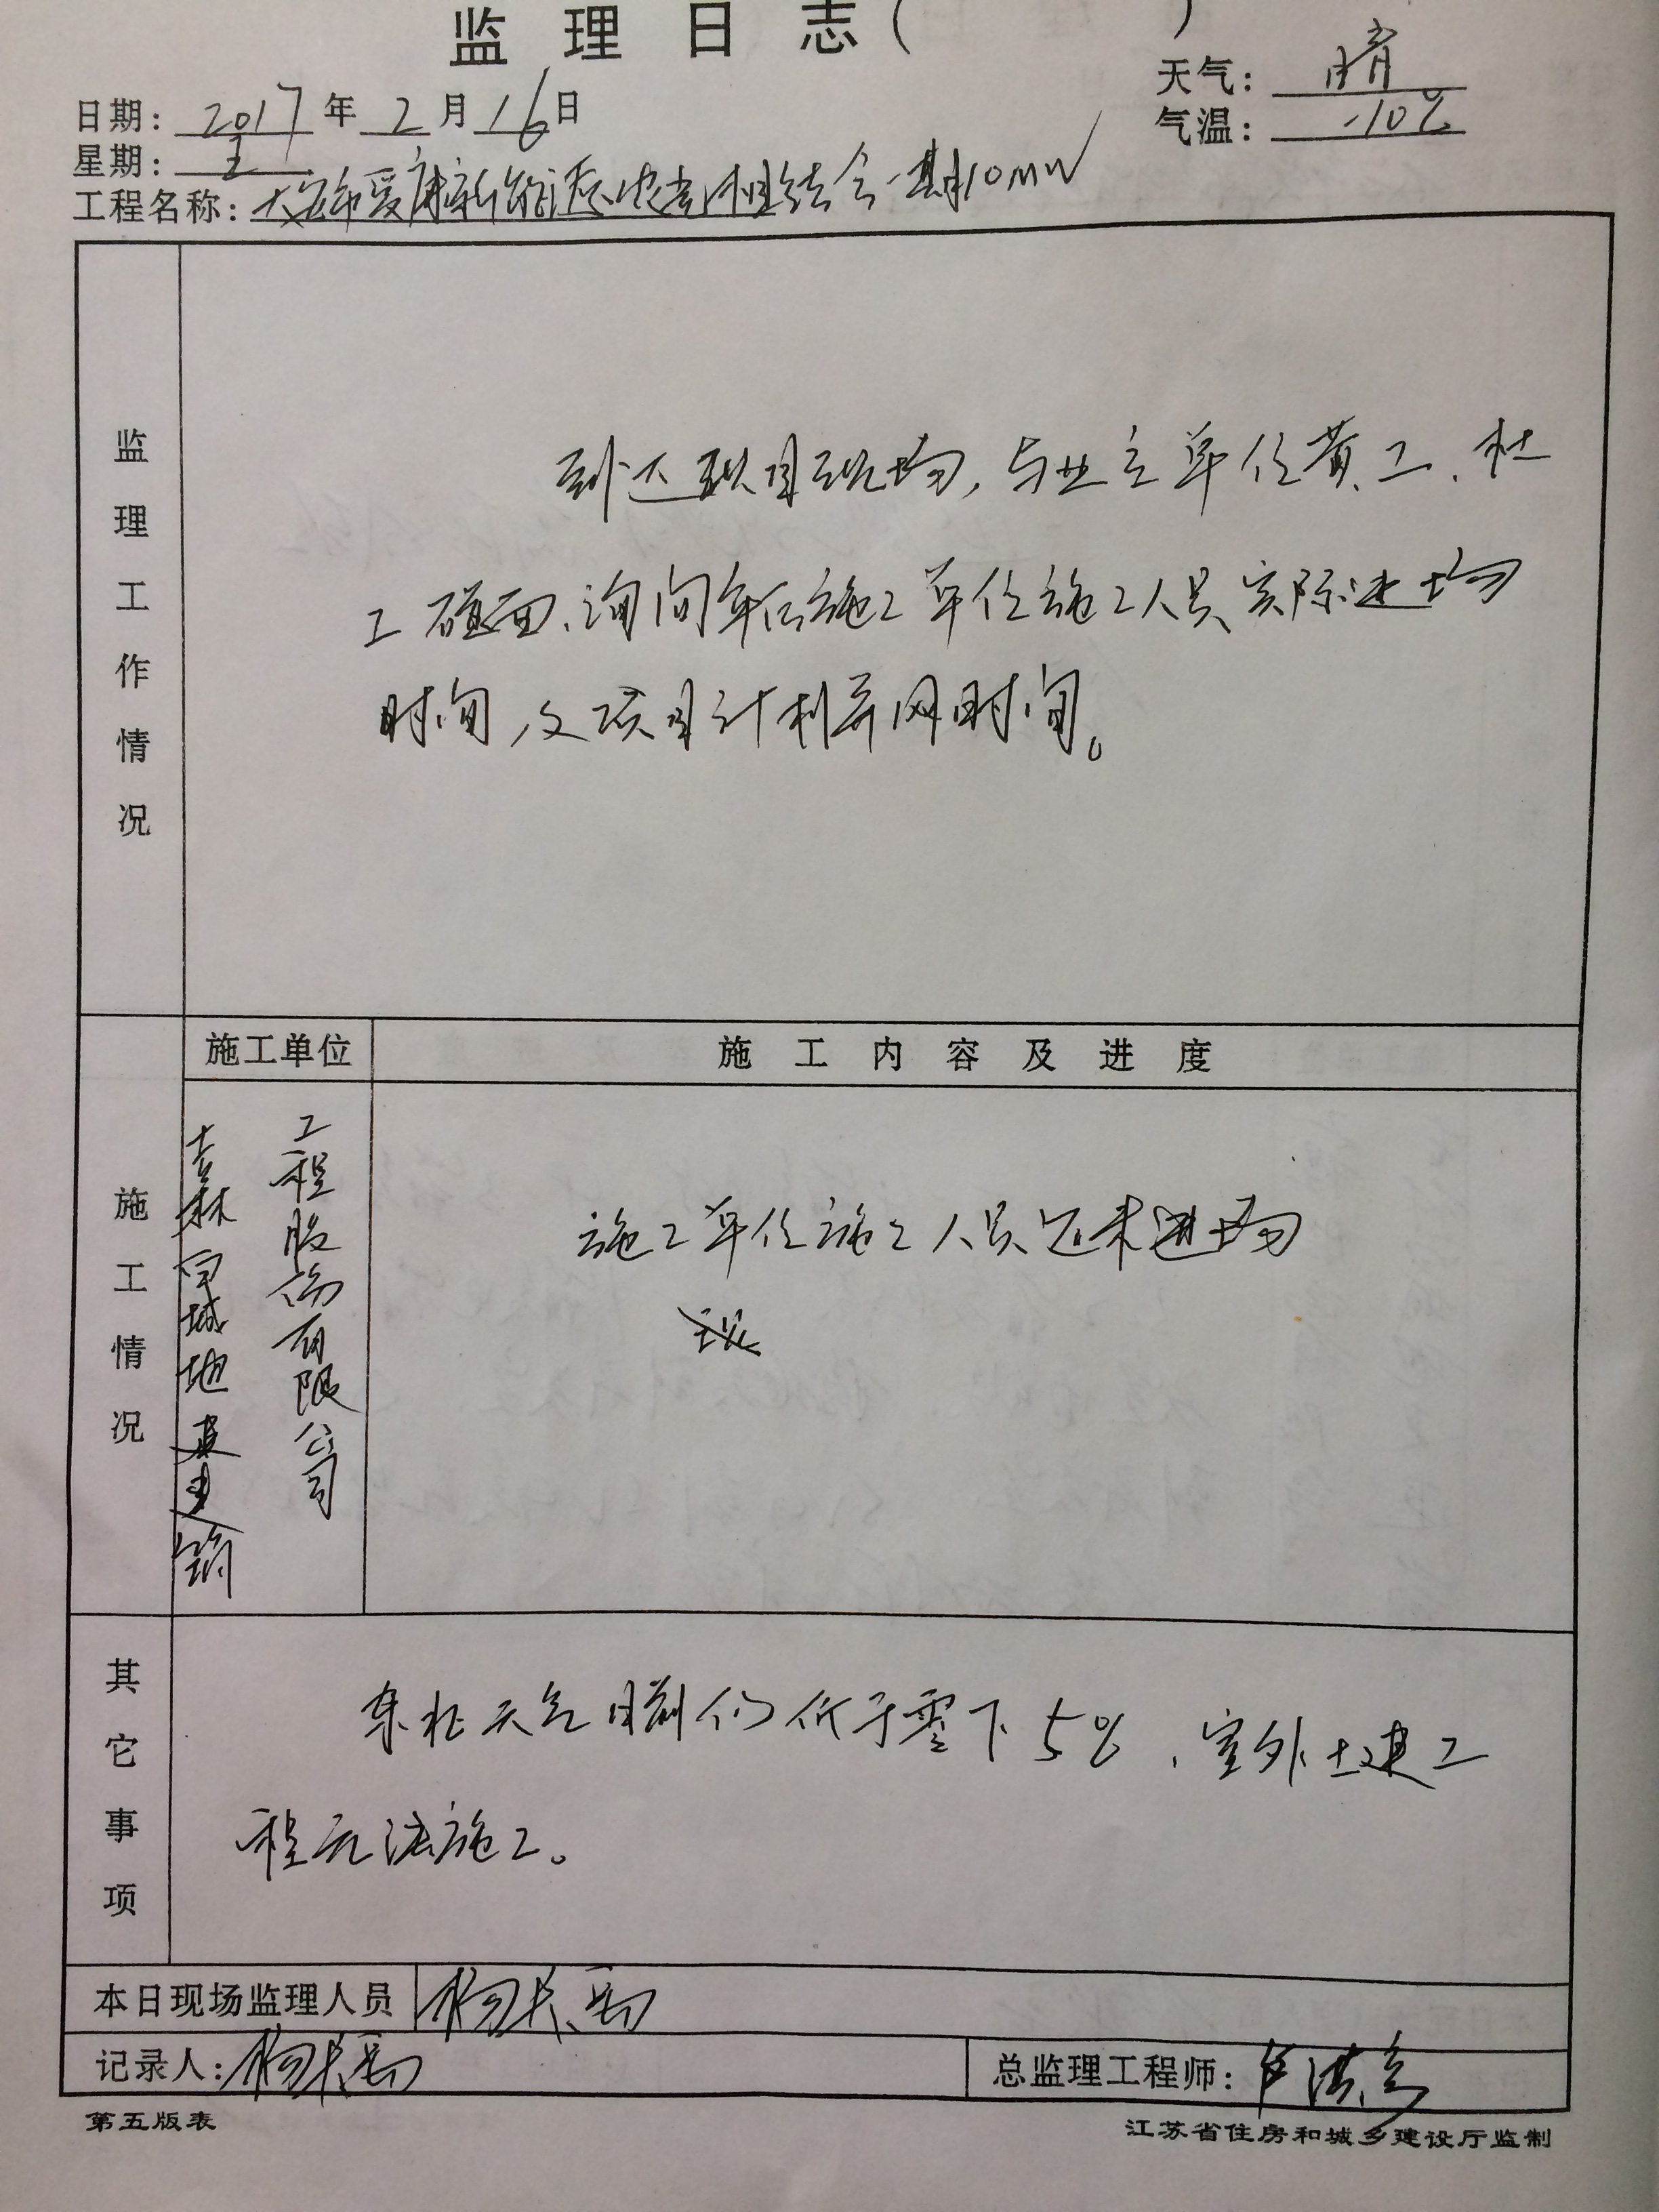 监理日志( )
天气: 晴
日期: 2017年2月16日
气温: -10℃
星期:
工程名称: 大安市爱康新能源农光相结合一期10MW
监理工作情况
到达项目现场,与业主单位黄工、杜
工碰面、询问年后施工单位施工人员实际进场
时间,及项目计划并网时间。
施工单位
施工内容及进度
施工情况
吉林百城地建建筑
工程股份有限公司
施工单位施工人员还未进场
其它事项
东北天气目前仍低于零下5℃,室外土建工
程无法施工。
本日现场监理人员
记录人:
总监理工程师:
第五版表
江苏省住房和城乡建设厅监制